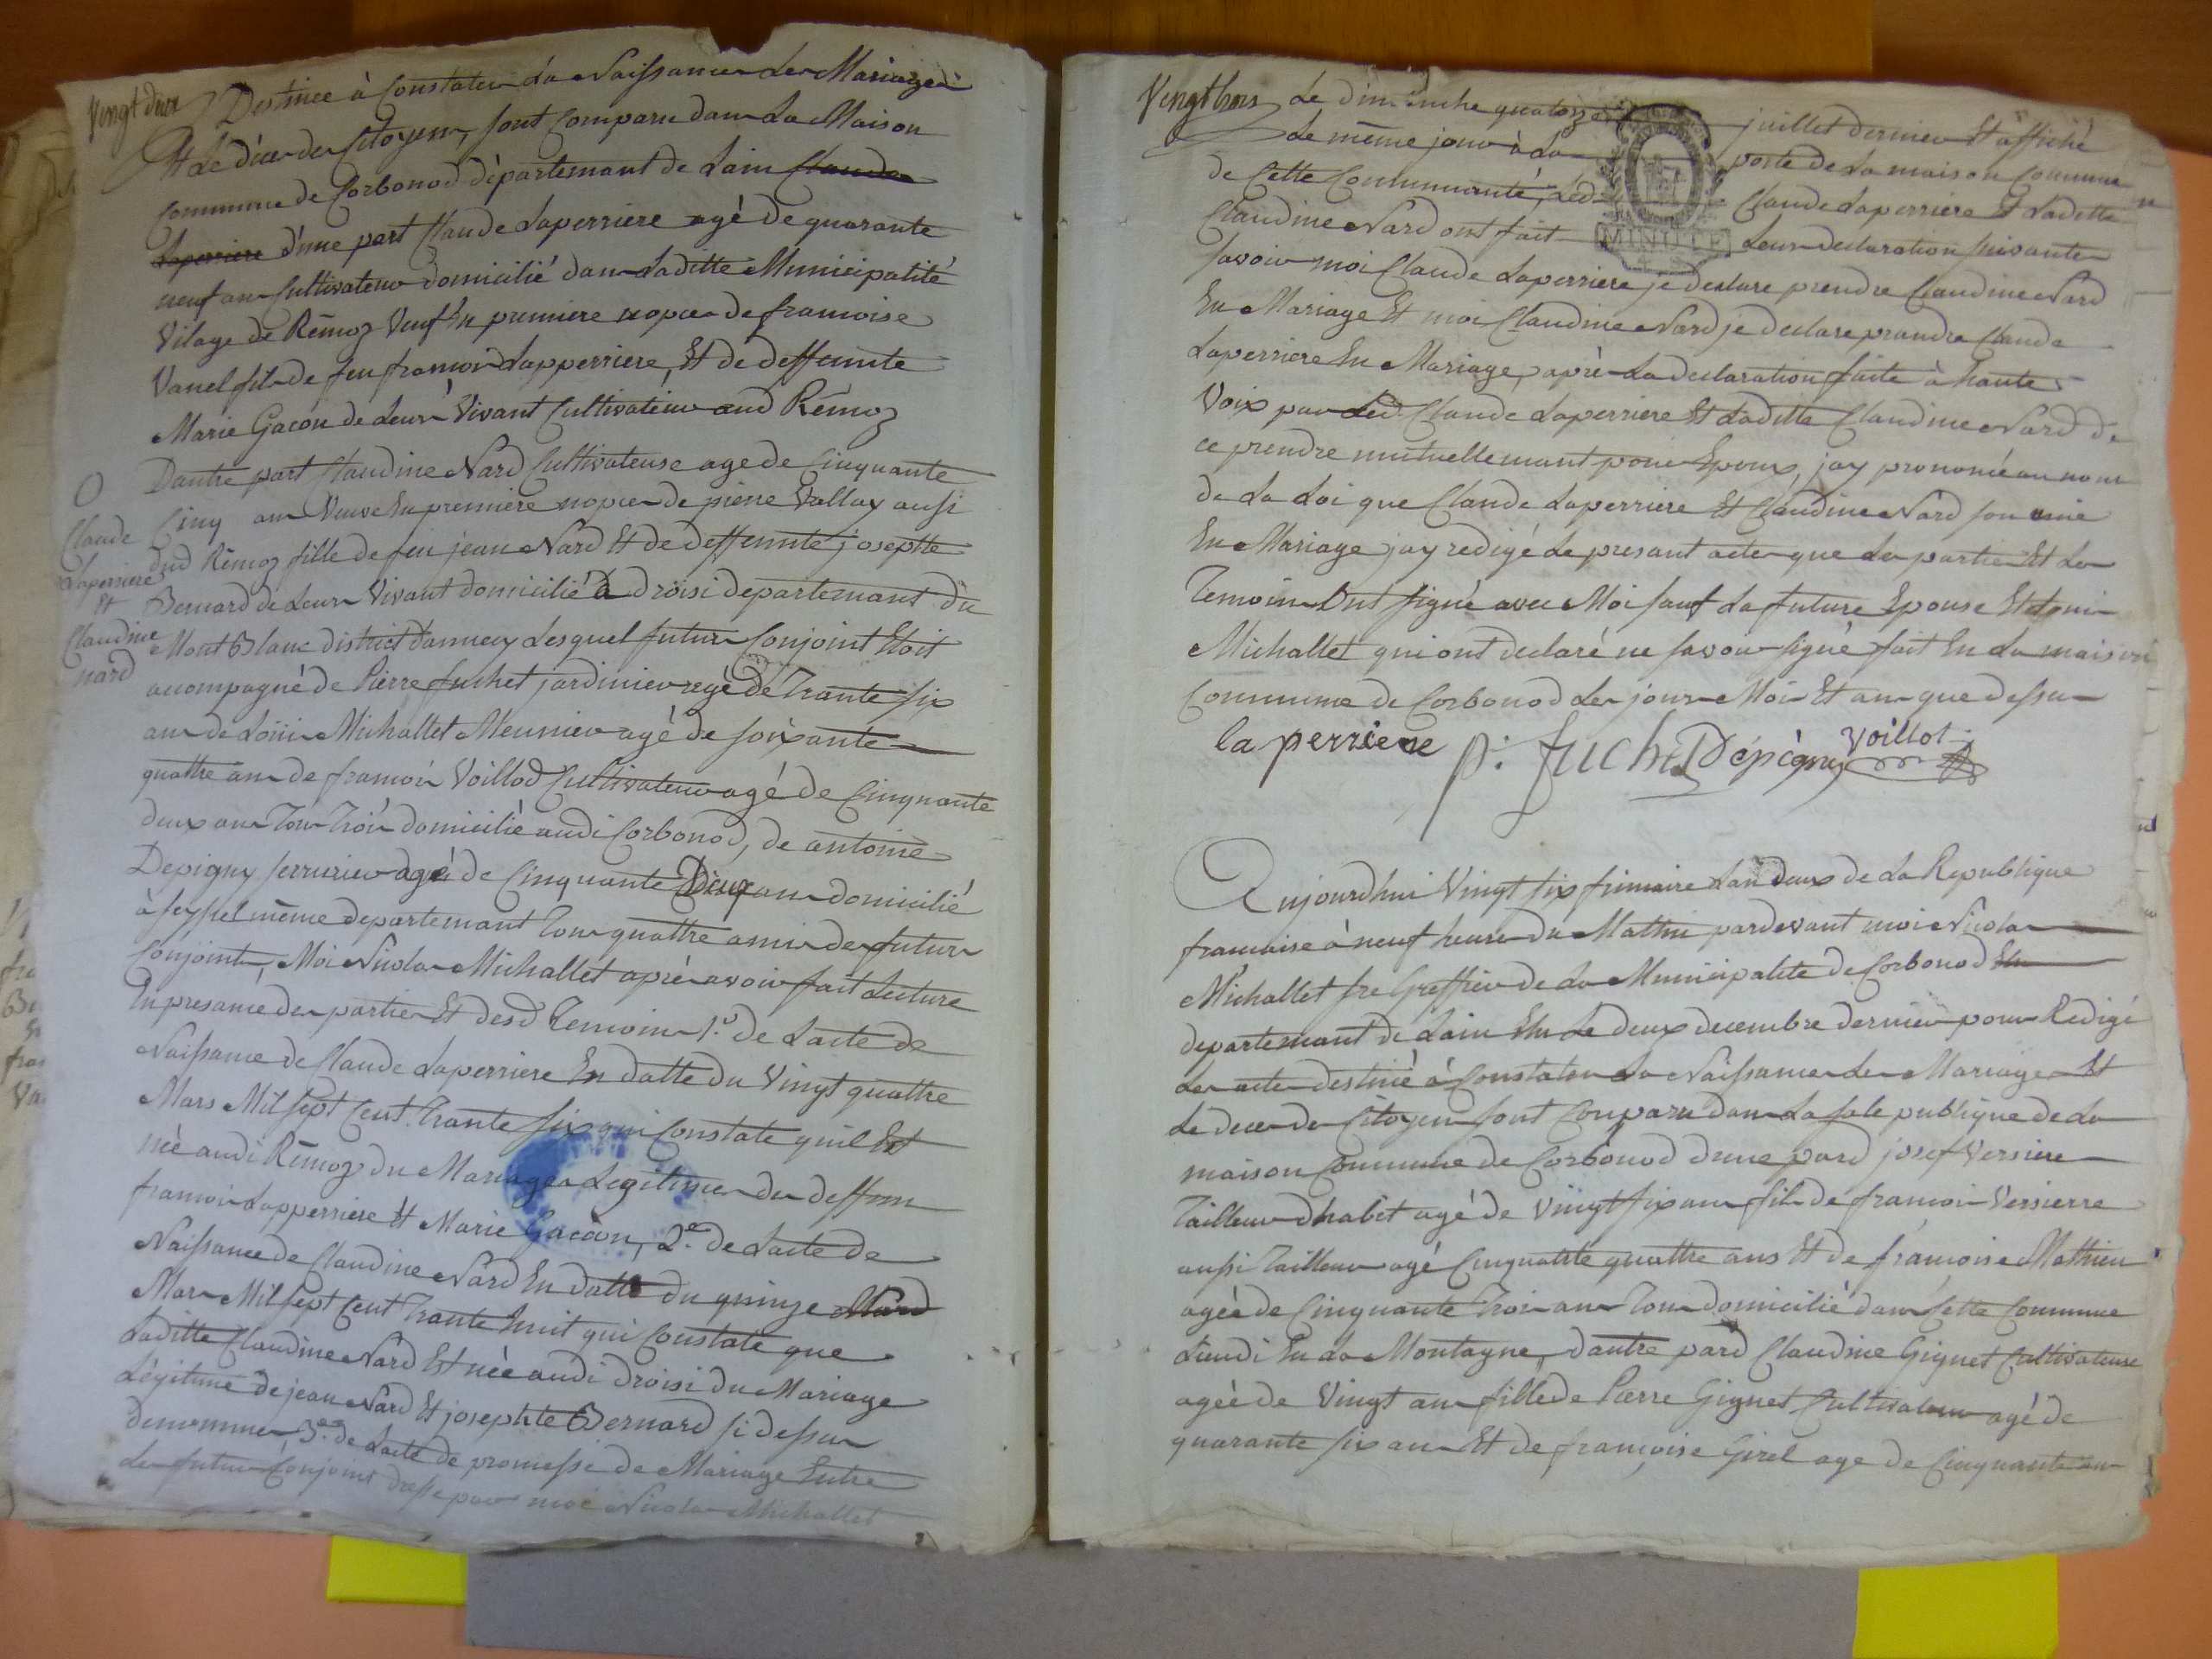 Vingt deux
Destinée à Constater La Naissance Les Mariage
Et Le décer des Citoyens, sont Comparu dans La Maison
Commune de Corbonod département de Lain Claude
Laperriere d'une part Claude Laperriere agé de quarante
neuf ans Cultivateur domicilié dans Laditte Municipalité
Vilage de Rémoz Veuf En premiere nopce de francoise
Vanel fils de feu francois Lapperriere, Et de deffeunte
Marie Gacon de Leurs Vivant Cultivateur aud Rémoz
Dautre part Claudine Nard Cultivateuse age de Cinquante
Cinq ans Veuve En premiere nopce de pierre Vallay ausi
dud Rémoz fille de feu jean Nard Et de deffeunte josephte
Bernard de Leurs Vivant domicilié à droisi departemant du
Mont Blanc district dannecy Lesquel futurs Conjoint Etoit
acompagné de Pierre fuchet jardinier agé de Trante six
ans de Loüis Michallet Meunier agé de soixante
quattre ans de francois Voillod Cultivateur agé de Cinquante
deux ans Tous Trois domicilié audi Corbonod, de antoine
Depigny serrurier agé de Cinquante Deux ans domicilié
à seyssel même departemant Tous quattre amis des futurs
Conjoints, Moi Nicolas Michallet après avoir fait Lecture
En presance des parties Et desd Temoins 1.º de Lacte de
Naissance de Claude Laperriere En datte du Vingt quattre
Mars Mil sept Cent Trante six qui Constate quil Est
née audi Rémoz du Mariage Legitime de deffun
francois Lapperriere Et Marie Gacon, 2.º de Lacte de
Naissance de Claudine Nard En datte du quinze Mard
Mars Mil sept Cent Trante huit qui Constate que
Laditte Claudine Nard Est née audi droisi du Mariage
Légitime de jean Nard Et josephte Bernard si dessus
denommer 3.º de Lacte de promesse de Mariage Entre
Les futurs Conjoint dresse par moi Nicolas Michallet
Claude
Laperriere
Et
Claudine
nard
Vingt trois
Le dimanche quatorze juillet dernier Et affiché
Le même jour à La porte de La maison Commune
de Cette Communauté, Led. Claude Laperriere Et Laditte
Claudine Nard ont fait Leurs declaration suivante
MINUTE
savoir moi Claude Laperriere je declare prendre Claudine Nard
En Mariage Et moi Claudine Nard je declare prandre Claude
Laperriere En Mariage, après La declaration faite à haute
Voix par Led. Claude Laperriere Et Laditte Claudine Nard de
ce prendre mutuellemant pour Epoux, jay prononcé au nom
de La Loi que Claude Laperriere Et Claudine Nard son unie
En Mariage jay redigé Le presant acte que Les parties Et Les
Temoins Ont signé avec Moi sauf La future Epouse Et Louis
Michallet qui ont declaré ne savoir signé fait En La maison
Commune de Corbonod Les jour Mois Et an que dessus
la perriere p: fuchet Dépigny Voillot
Aujourdhui Vingt six frimaire Lan deux de La Republique
francaise à neuf heures du Mattin pardevant moi Nicolas
Michallet sre Greffier de La Municipalité de Corbonod Elu
departemant de Lain Elu Le deux decembre dernier pour Redigé
Les acte destiné à Constater La Naissance Les Mariages Et
Le deces des Citoyens sont Comparu dans La sale publique de La
maison Commune de Corbonod dune pard josef Versiere
Tailleur dhabit agé de Vingt six ans fils de francois Versierre
aussi Tailleur agé Cinquante quattre ans Et de francoise Mathieu
agée de Cinquante Trois ans Tous domicilié dans Cette Commune
Lieudi En La Montagne, dautre pard Claudine Gignet Cultivateuse
agée de Vingt ans fille de Pierre Gignet Cultivateur agé de
quarante six ans Et de françoise Girel age de Cinquante ans